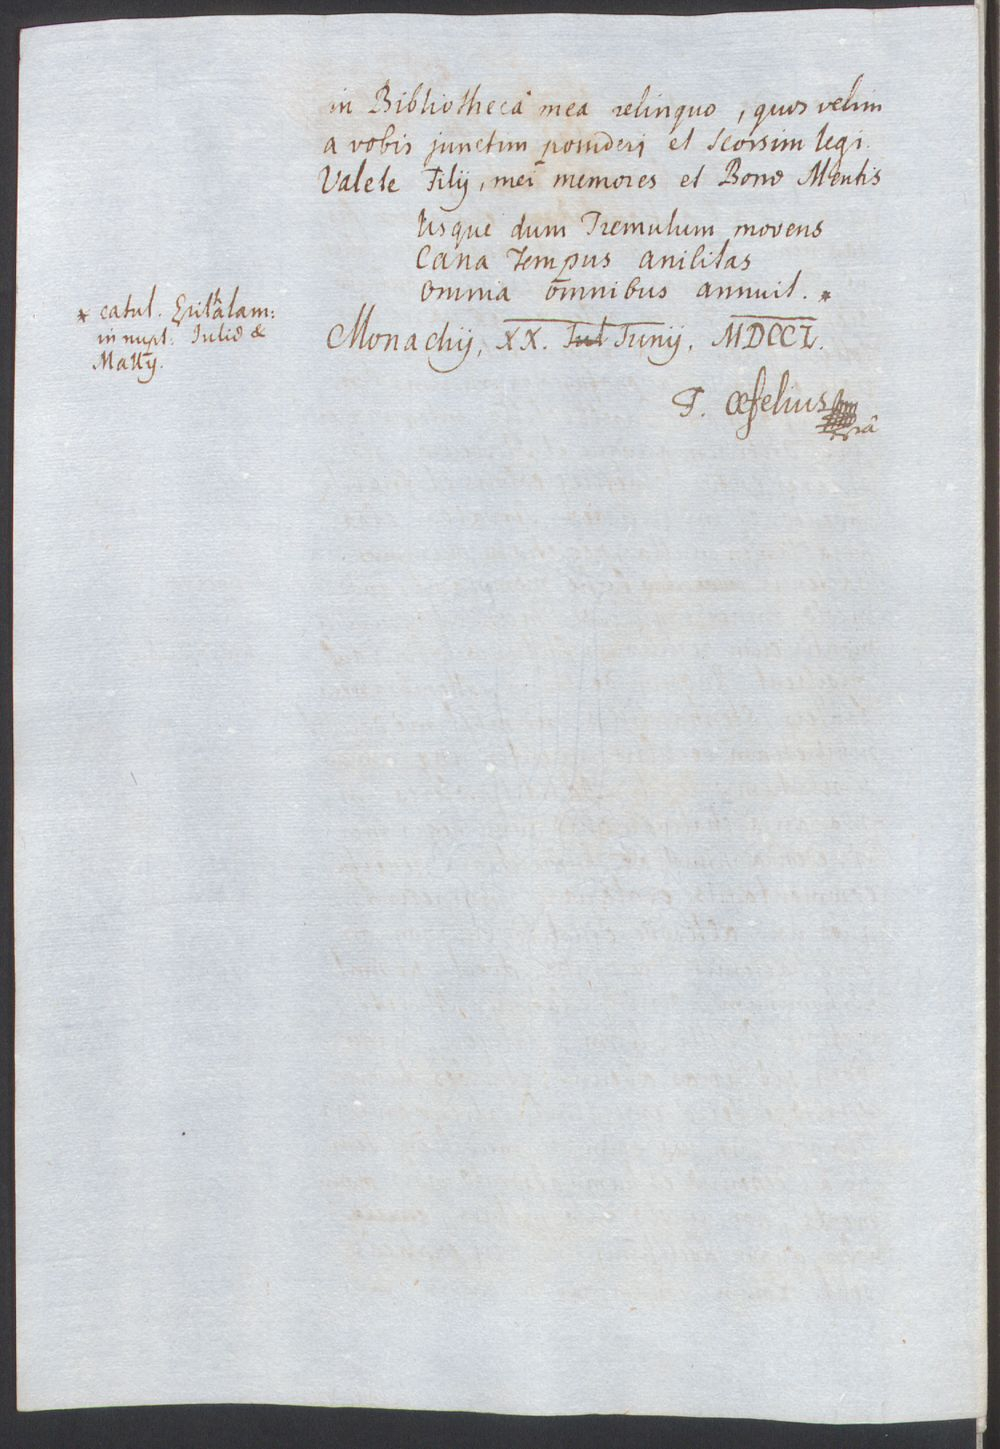 in Bibliothecâ mea relinquo, quos velim
a vobis junctim ponderj et seorsim legi.
Valete Filij, mei memores et Bonæ Mentis
Usque dum Tremulum movens
Cana Tempus anilitas
omnia omnibus annuit. *
* catul. Epithalam:
in nupt. Juliæ &
Mallij.
Monachij, XX. Jul Junij, MDCCL.
F. Œfelius